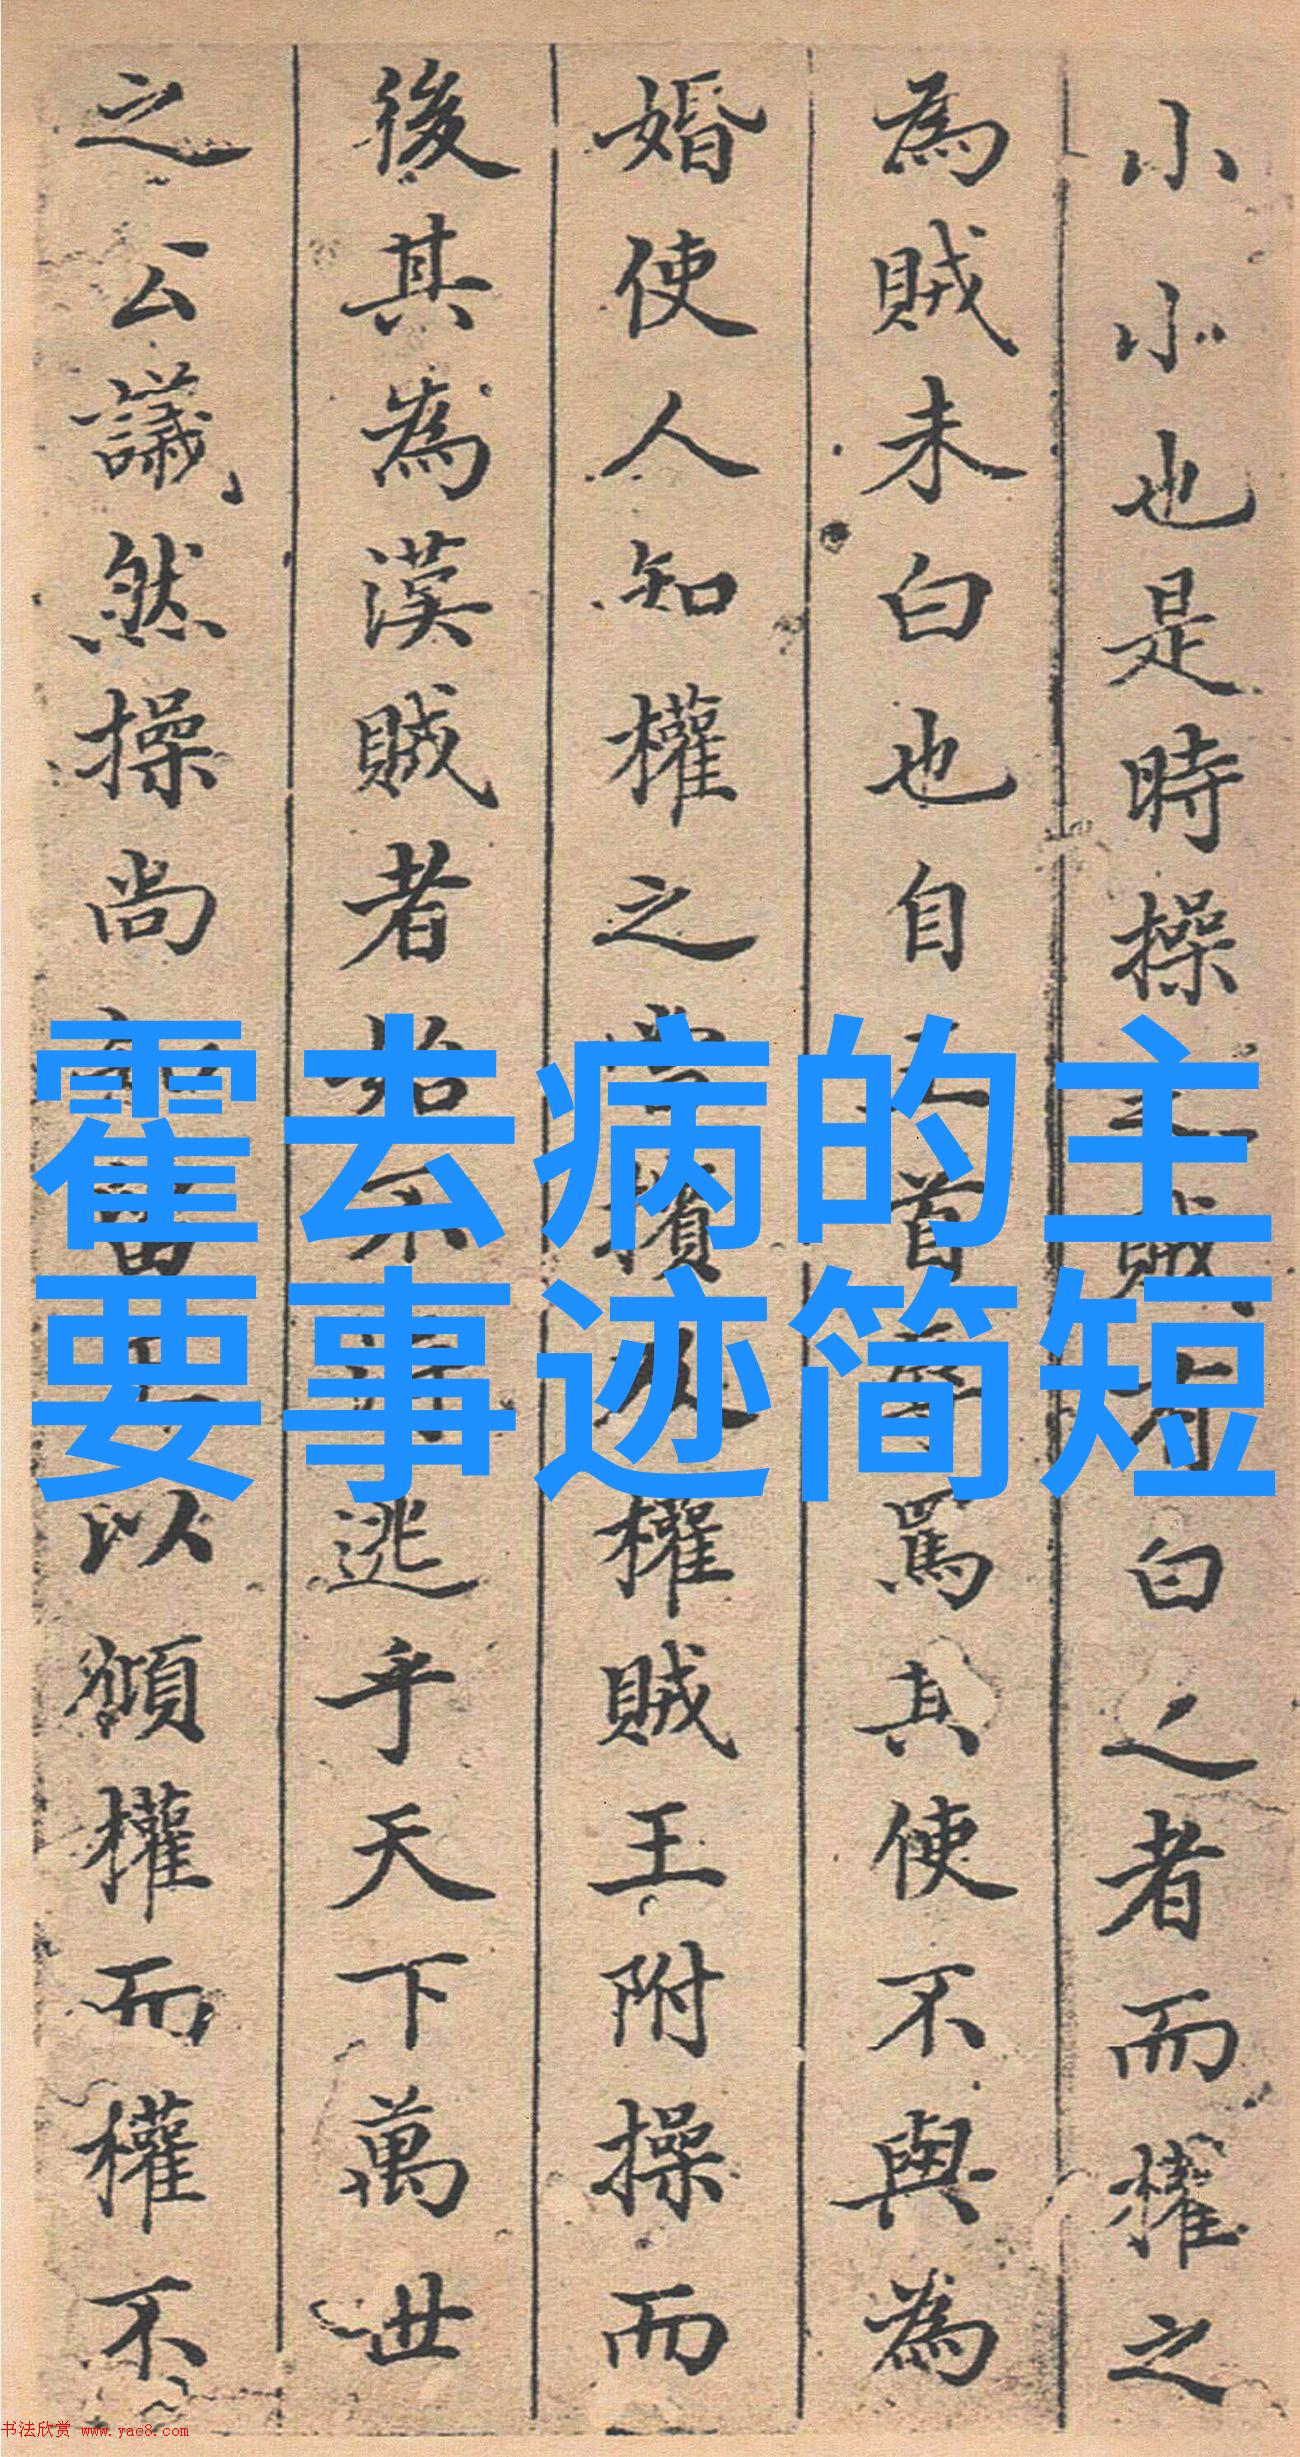 小小也是時操之賊有白之者而權之
為賊未白也自首罵其使不與為
婚使人知權之當擯及權賊王附操而
後其為漢賊者始不逃乎天下萬世
之公議然操尚以權而權不
霍去病的主
要事迹简短
书法欣赏 www.yac8.com